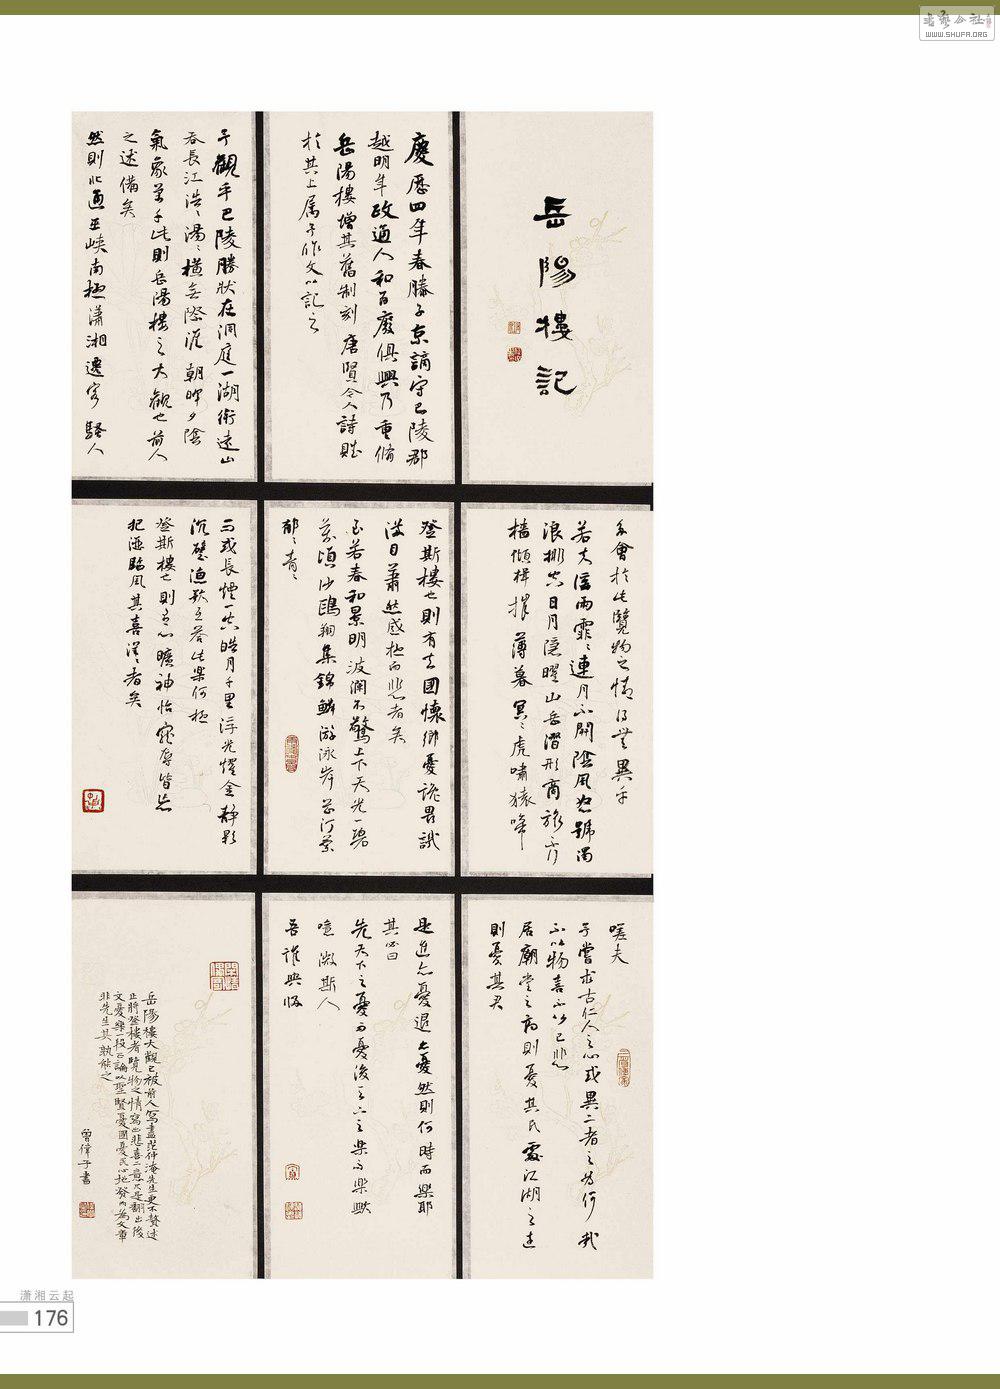 书艺公社
WWW.SHUFA.ORG
岳陽樓記
慶曆四年春滕子京謫守巴陵郡
越明年政通人和百廢俱興乃重脩
岳陽樓增其舊制刻唐賢今人詩賦
於其上属予作文以記之
予觀乎巴陵勝狀在洞庭一湖銜遠山
吞長江浩〻湯〻橫無際涯朝暉夕陰
氣象萬千此則岳陽樓之大觀也前人
之述備矣
然則北通巫峽南極瀟湘遷客騷人
多會於此覽物之情得無異乎
若夫淫雨霏〻連月不開陰風怒號濁
浪排空日月隱曜山岳潛形商旅不行
檣傾楫摧薄暮冥〻虎嘯猿啼
登斯樓也則有去國懷鄉憂讒畏譏
滿目蕭然感極而悲者矣
至若春和景明波瀾不驚上下天光一碧
萬頃沙鷗翔集錦鱗游泳岸芷汀蘭
郁〻青〻
而或長煙一空皓月千里浮光耀金靜影
沉璧漁歌互荅此樂何極
登斯樓也則有心曠神怡寵辱皆忘
把酒臨風其喜洋〻者矣
嗟夫
予嘗求古仁人之心或異二者之為何哉
不以物喜不以己悲
居廟堂之高則憂其民處江湖之遠
則憂其君
是進亦憂退亦憂然則何時而樂耶
其必曰
先天下之憂而憂後天下之樂而樂歟
噫微斯人
吾誰與歸
岳陽樓大觀已被前人寫盡范仲淹先生更不贅述
止將登樓者覽物之情寫出悲喜二意只是翻出後
文憂樂一段正論以聖賢憂國憂民心地發而為文章
非先生其孰能之
曾偉子書
潇湘云起
176